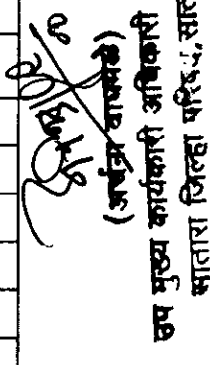 (अर्चना वाघमळे)
उप मुख्य कार्यकारी अधिकारी
सातारा जिल्हा परिषद, सात